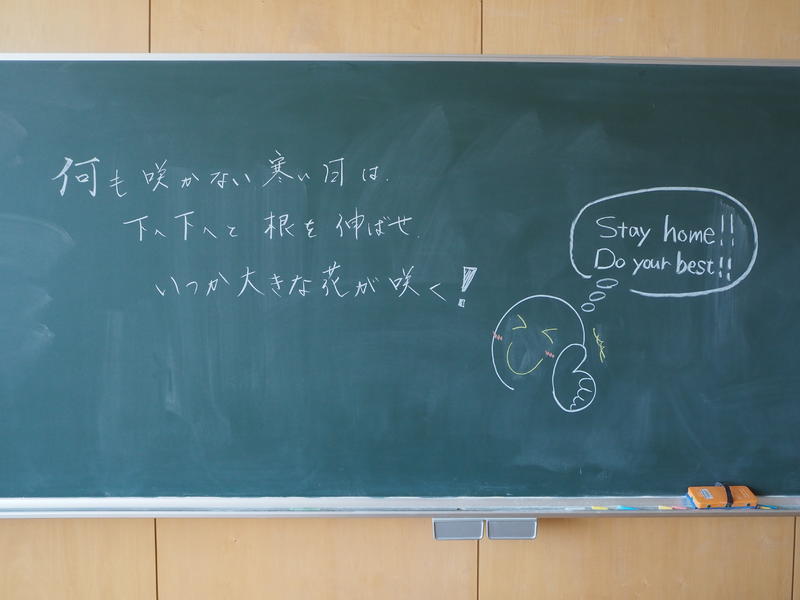 何も咲かない寒い日は.
下へ下へと 根を伸ばせ.
いつか大きな花が咲く!
Stay home!!
Do your best!!